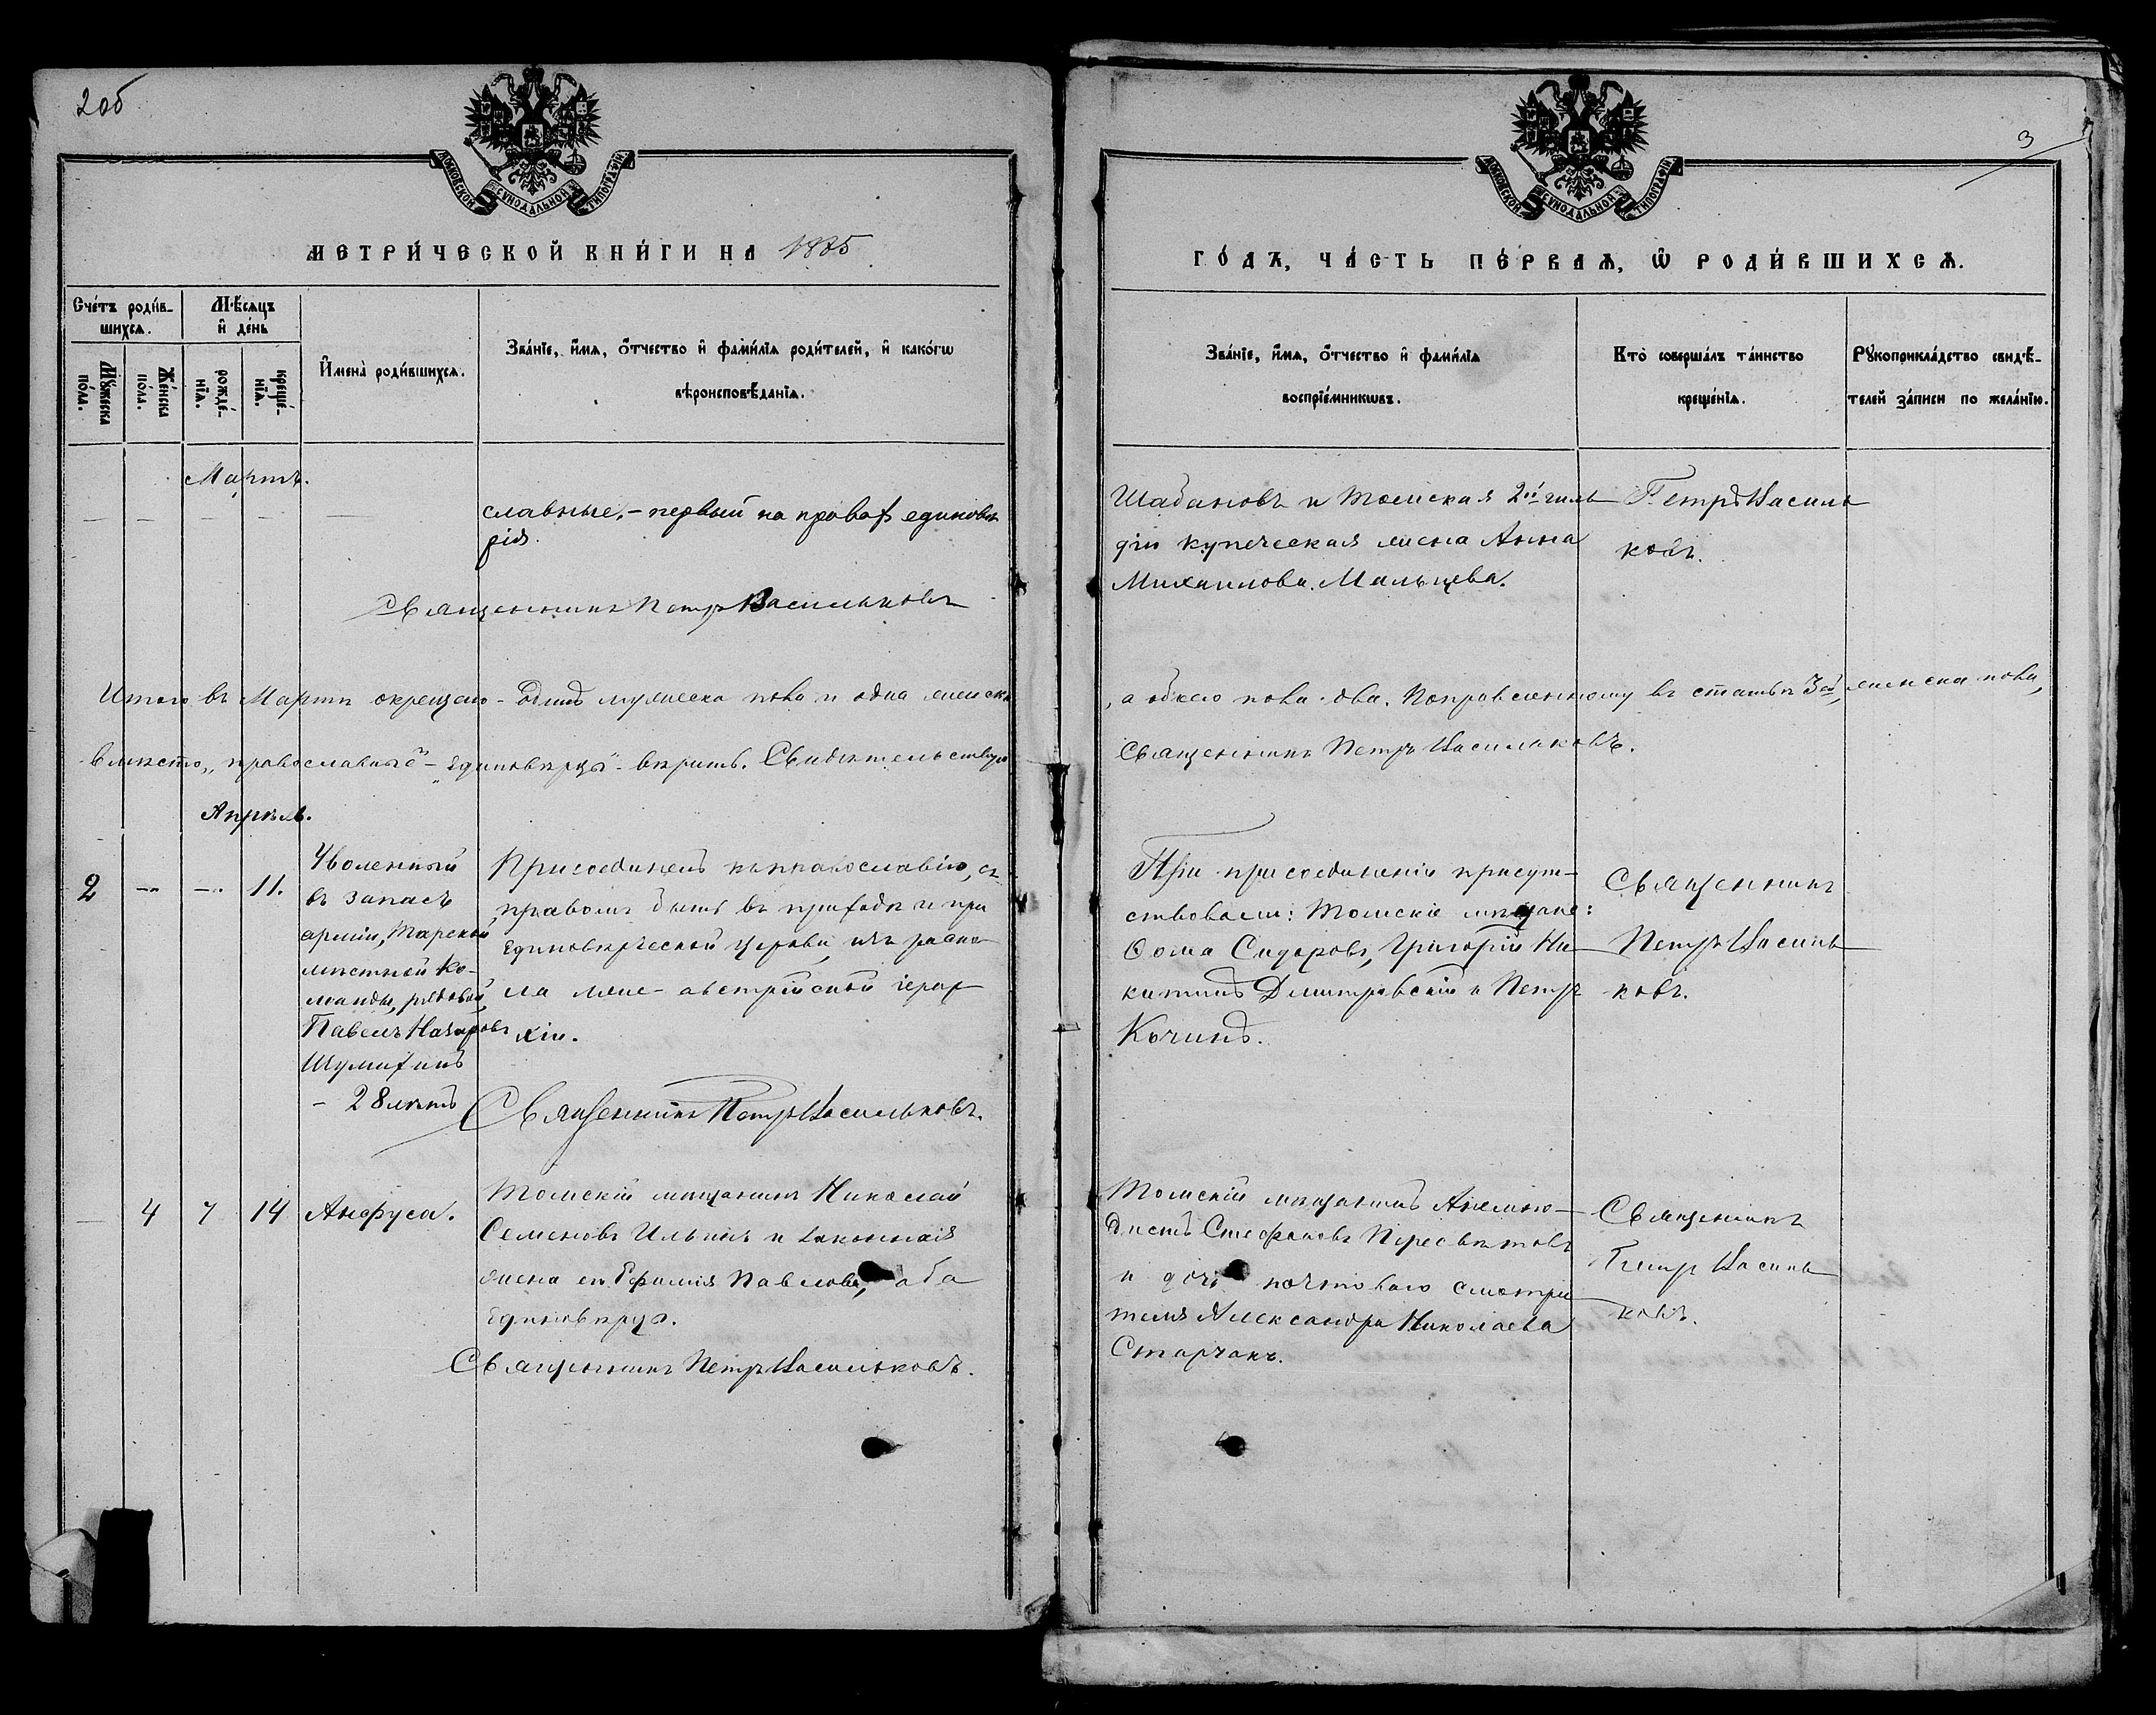 2об
МОСКОВСКОЙ СУНОДАЛЬНОЙ ТИПОГРАФІИ
МЕТРИ́ЧЕСКОЙ КНИ́ГИ НА 1885
Сче́тъ роди́в-
шихсѧ.
Мѣ́сѧцъ
и҆ де́нь
Мꙋ́жеска
по́ла.
Же́нска
по́ла.
рожде́-
нїѧ.
креще́-
нїѧ.
И҆мена̀ роди́вшихсѧ.
Зва́нїе, и҆́мѧ, ѻ҆́тчество и҆ фами́лїѧ роди́телей, и҆ како́гѡ
вѣроисповѣ́данїѧ.
Мартъ.
— — — — —
славные, – первый на правах единовѣ
рія.
Священникъ Петръ Васильковъ
Итого въ Мартѣ окрещено – одинъ мужеска пола и одна женска
вмѣсто „православный“ – „единовѣрцы“ – вѣрить. Свидѣтельствую
Апрѣль.
2 — — 11.
Уволенный
въ запасъ
арміи, Тарской
мѣстной ко-
манды, рядовой
Павелъ Назаровъ
Шумихинъ
– 28 лѣтъ
Присоединенъ къ православію, съ
правомъ быть въ приходѣ и при
единовѣрческой церкви, изъ раско
ла лже-австрійской іерар
хіи.
Священникъ Петръ Васильковъ.
— 4 7 14 Анфуса.
Томскій мѣщанинъ Николай
Семеновъ Ильинъ и законная
жена его Ефимія Павлова, оба
единовѣрцы.
Священникъ Петръ Васильковъ.
3
МОСКОВСКОЙ СУНОДАЛЬНОЙ ТИПОГРАФІИ
ГО́ДЪ, ЧА́СТЬ ПЕ́РВАѦ, Ѡ҆ РОДИ́ВШИХСѦ.
Зва́нїе, и҆́мѧ, ѻ҆́тчество и҆ фами́лїѧ
воспрїе́мникѡвъ.
Кто̀ соверша́лъ та́инство
креще́нїѧ.
Рꙋкоприкла́дство свидѣ́-
телей за́писи по жела́нїю.
Шабановъ и Томская 2ой гиль
діи купеческая жена Анна
Михаилова Мальцева.
Петръ Василь
ковъ.
, а обоего пола два. Поправленному въ статьѣ 3ей, женска пола,
Священникъ Петръ Васильковъ.
При присоединеніи присут-
ствовали: Томскіе мѣщане:
Ѳома Сидоровъ, Григорій Ни-
китинъ Дмитровскій и Петръ
Кочинъ.
Священникъ
Петръ Василь
ковъ.
Томскій мѣщанинъ
Стефановъ Пересвѣтовъ
и дочь почтоваго смотри
теля Александра Николаева
Старчакъ.
Священникъ
Петръ Василь
ковъ.